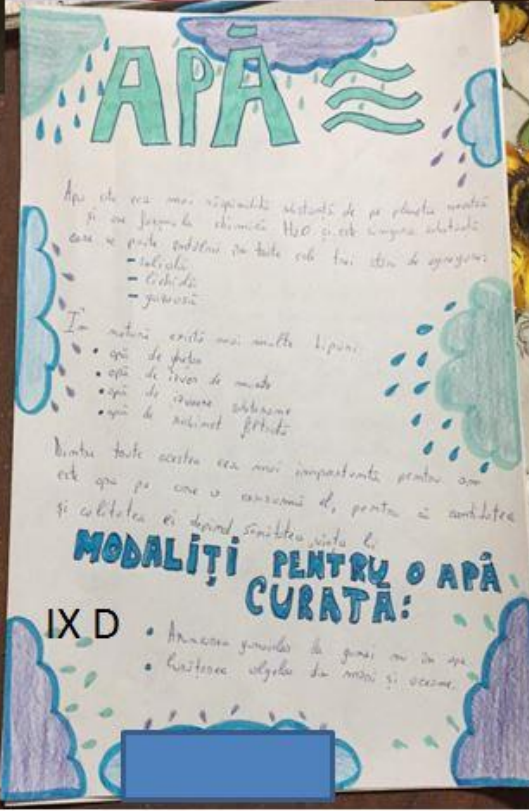 APĂ
Apa este cea mai răspândită substanță de pe planeta noastră
și are formula chimică H2O și este singura substanță
care se poate întâlni în toate cele trei stări de agregare:
- solidă
- lichidă
- gazoasă
În natură există mai multe tipuri:
• apă de
• apă de izvor de munte
• apă de izvoare subterane
• apă de robinet filtrată
Dintre toate acestea cea mai importantă pentru om
este apa pe care o consumă el, pentru că cantitatea
și calitatea ei depind sănătatea, viața lui.
MODALIȚI PENTRU O APĂ
CURATĂ:
IX D
• Aruncarea gunoaielor la gunoi nu în apă
• algelor din mări și oceane.